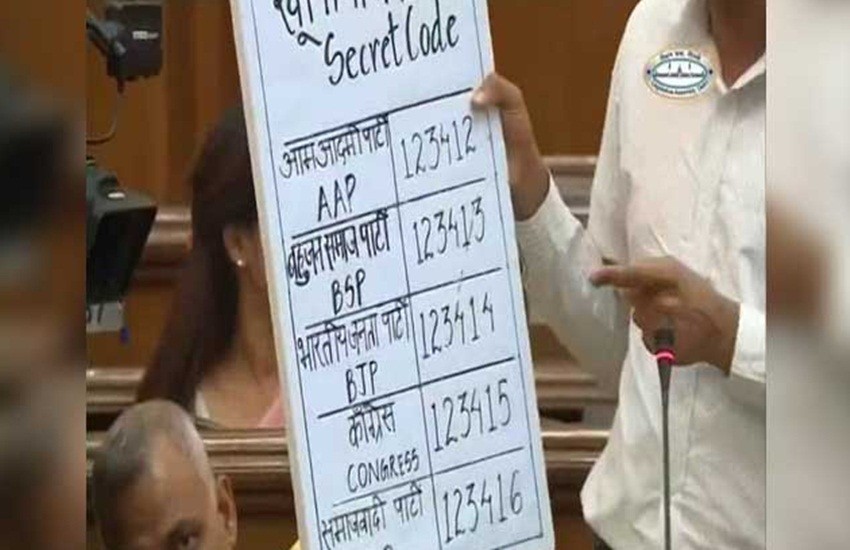 Secret Code
आम आदमी पार्टी
AAP
123412
बहुजन समाज पार्टी
BSP
123413
भारतीय जनता पार्टी
BJP
123414
काँग्रेस
CONGRESS
123415
समाजवादी पार्टी
123416